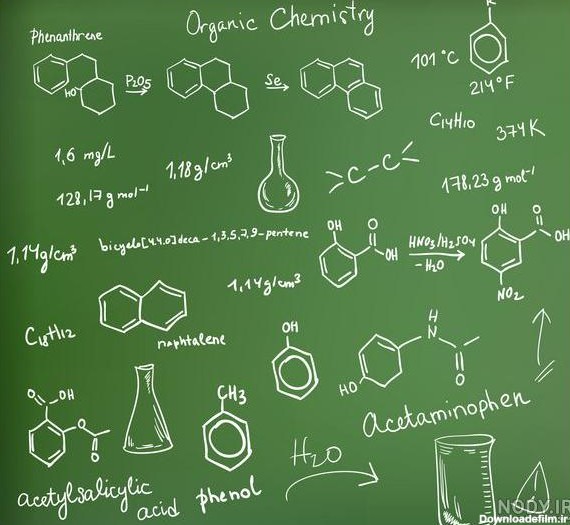 Organic Chemistry
Phenanthrene
HO
P2O5
Se
R
101 °C
214°F
C14H10
374K
1,6 mg/L
1,18g/cm³
128,17g mol⁻¹
C-C
178,23 g mol⁻¹
1,14g/cm³
bicyclo[4,4,0]deca-1,3,5,7,9-pentene
1,14g/cm³
OH
O
OH
HNO3/H2SO4
-H2O
OH
O
OH
NO2
C18H12
naphtalene
OH
H
N
O
HO
Acetaminophen
O
OH
O
O
CH3
H2O
acetylsalicylic
acid
phenol
NODY.IR
Downloadefilm.ir